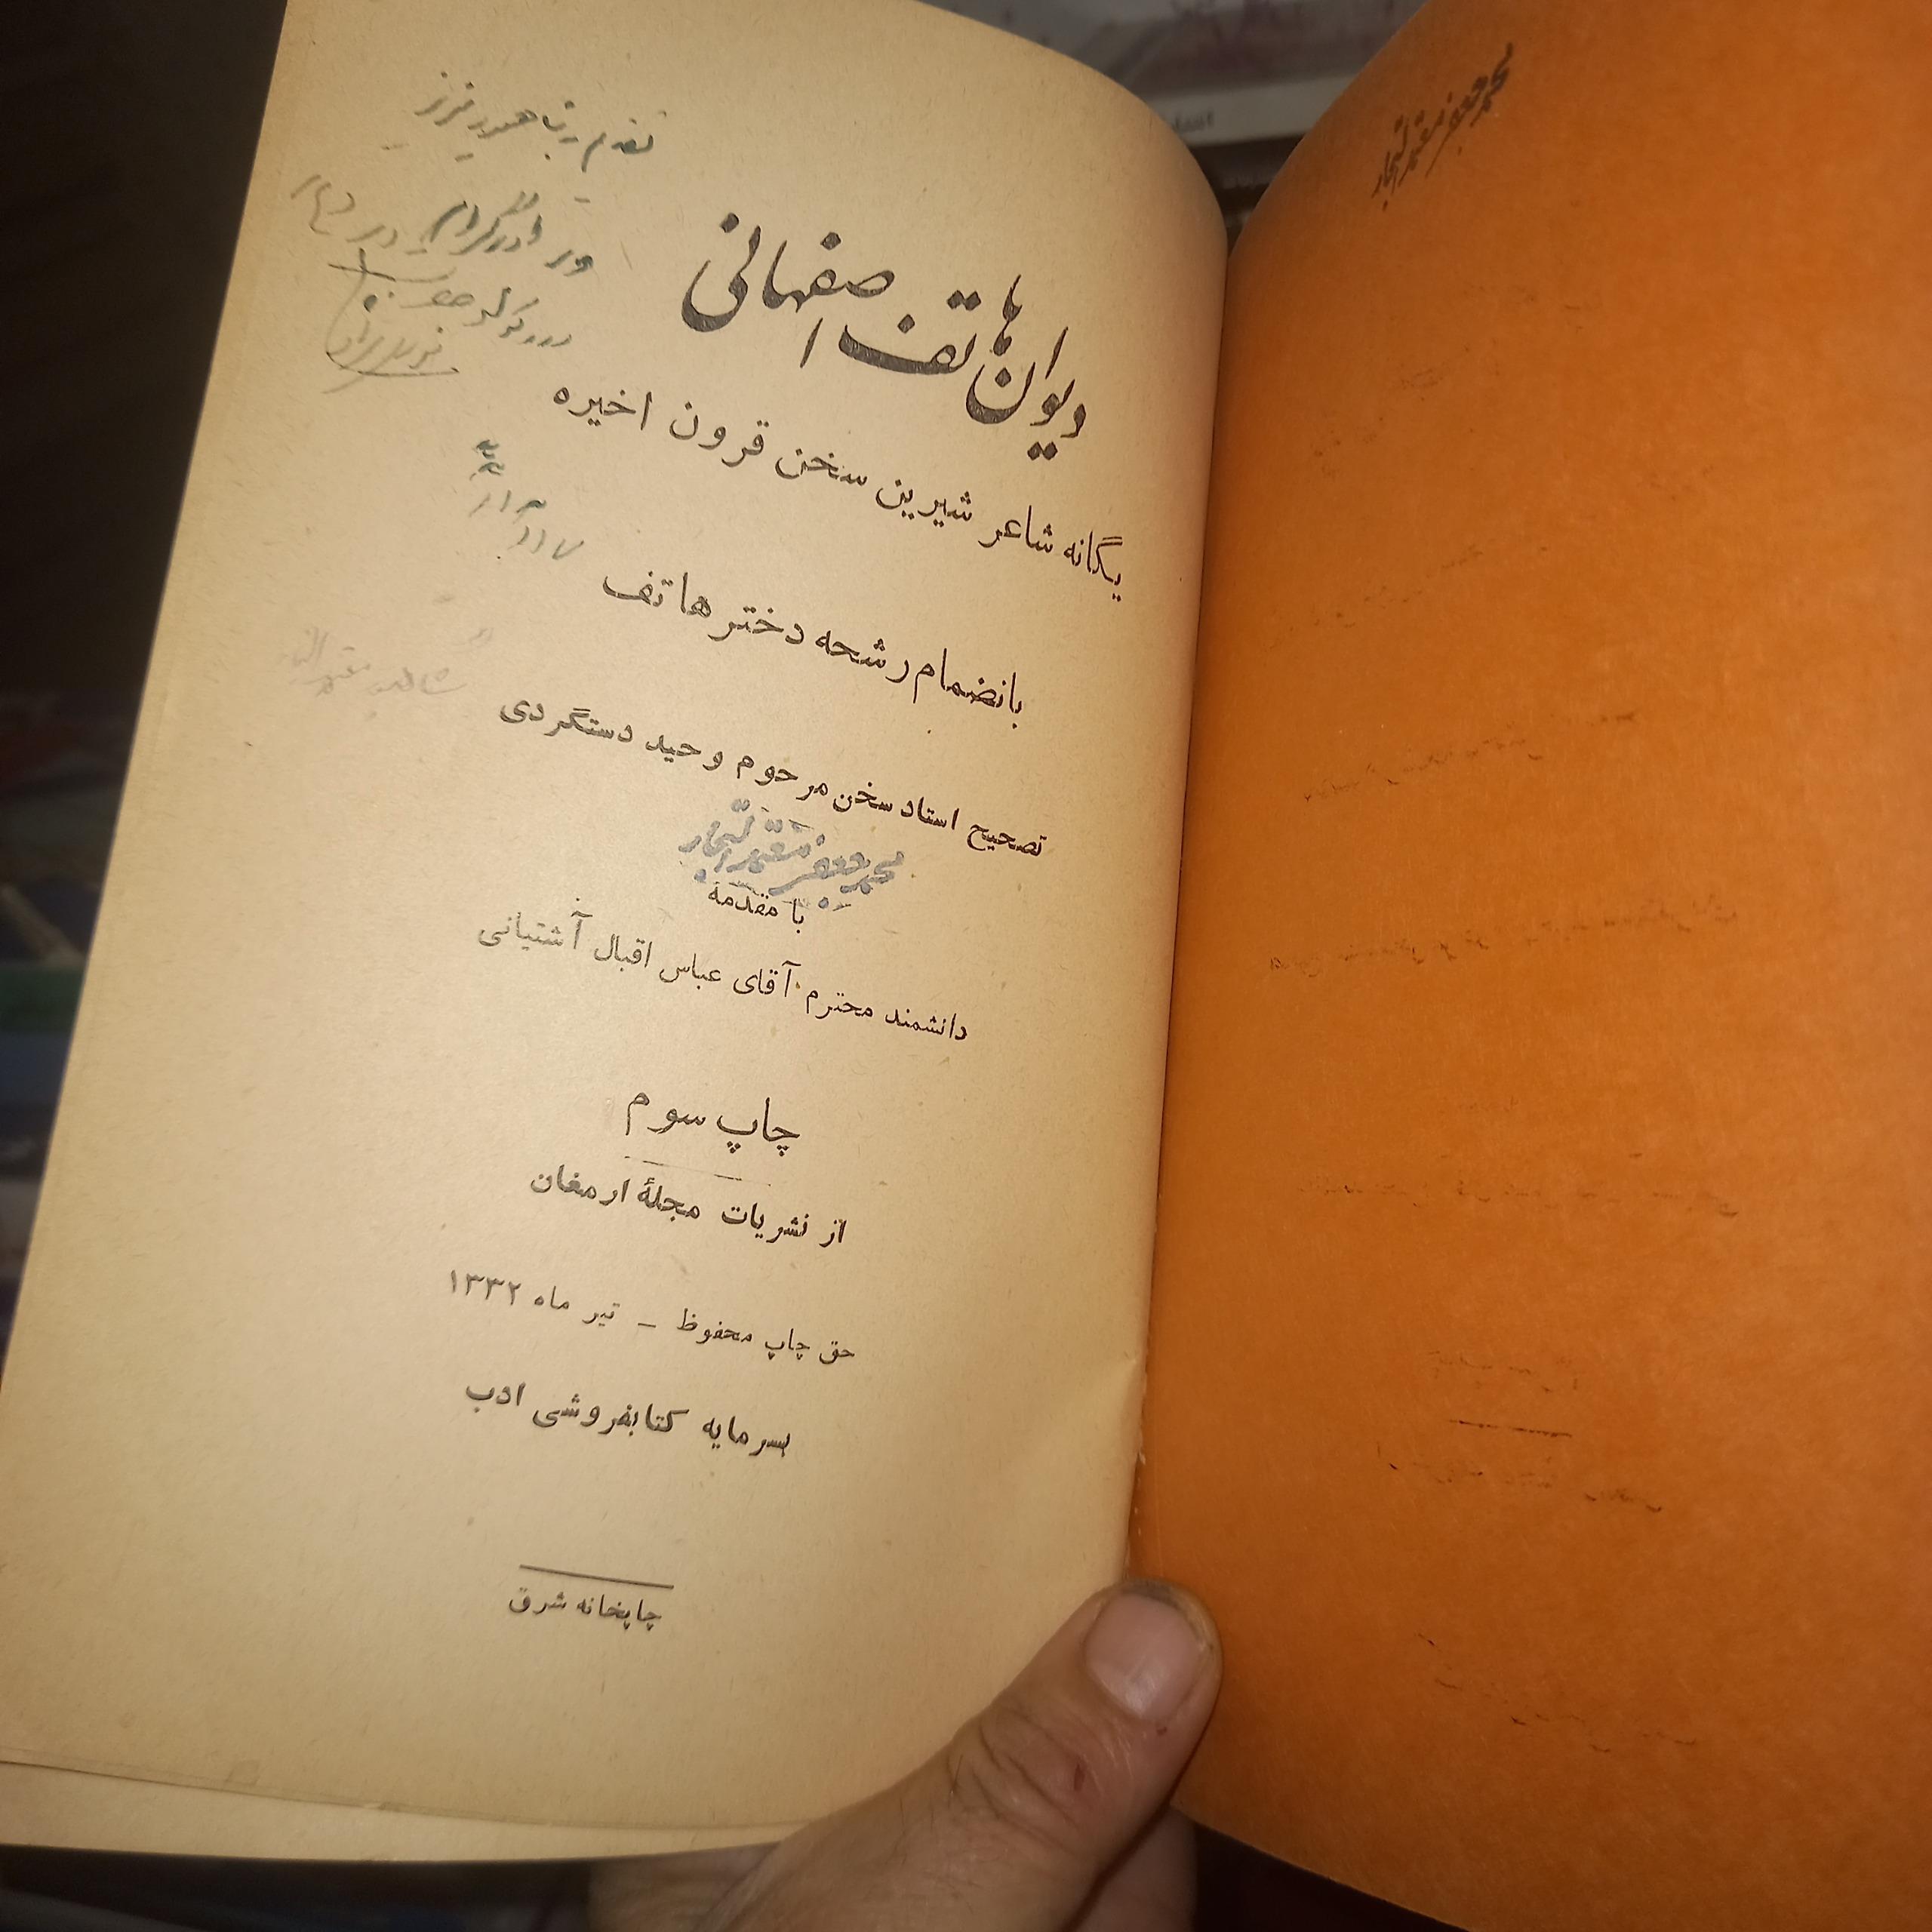 محمد جعفر معتمد التجار
تقدیم به شاهین عزیز
دیوان هاتف اصفهانی
یگانه شاعر شیرین سخن قرون اخیره
بانضمام رشحه دختر هاتف
تصحیح استاد سخن مرحوم وحید دستگردی
محمد جعفر معتمد التجار
با مقدمه
دانشمند محترم آقای عباس اقبال آشتیانی
چاپ سوم
از نشریات مجلهٔ ارمغان
حق چاپ محفوظ – تیر ماه ۱۳۳۲
سرمایه کتابفروشی ادب
چاپخانه شرق